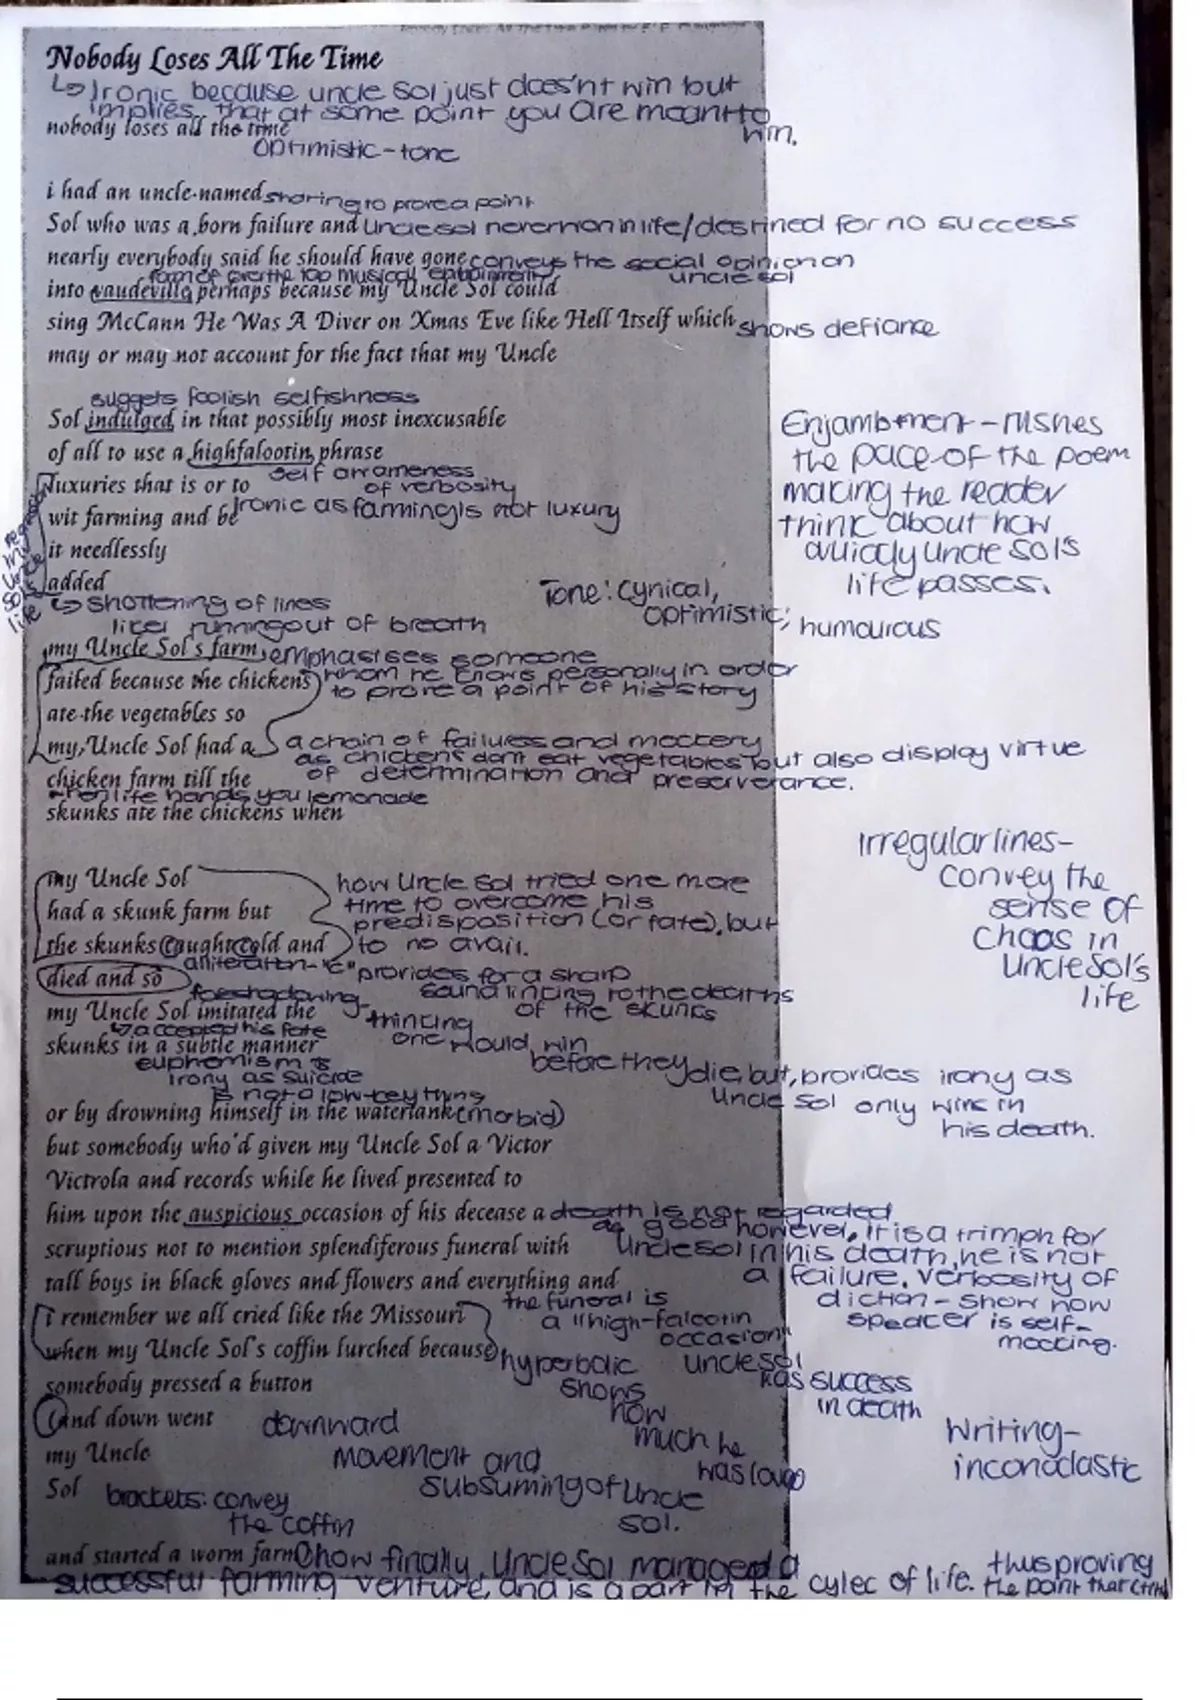 Nobody Loses All The Time
↳ Ironic because uncle sol just does'nt win but
implies that at some point you are meant to
win.
nobody loses all the time
optimistic-tone
i had an uncle named sharing to prove a point
Sol who was a born failure and Uncle sol never won in life/destined for no success
nearly everybody said he should have gone conveys the social opinion on
uncle sol
form of over the top musical entertainment
into vaudeville perhaps because my Uncle Sol could
sing McCann He Was A Diver on Xmas Eve like Hell Itself which shows defiance
may or may not account for the fact that my Uncle
suggets foolish selfishness
Sol indulged in that possibly most inexcusable
of all to use a highfalootin phrase
self awareness
of verbosity
luxuries that is or to
wit farming and be ironic as farming is not luxury
it needlessly
added
↳ shortening of lines
like running out of breath
Enjambment - rushes
the pace of the poem
making the reader
think about how
quickly Uncle Sol's
life passes.
Tone: cynical,
optimistic,
humourous
my Uncle Sol's farm, emphasises someone
failed because the chickens whom he knows personally in order
to prove a point of his story
ate the vegetables so
my Uncle Sol had a a chain of failures and mockery
as chickens dont eat vegetables but also display virtue
chicken farm till the of determination and preserverance.
when life hands you lemonade
skunks ate the chickens when
Irregular lines-
convey the
sense of
chaos in
Uncle Sol's
life
my Uncle Sol how Uncle Sol tried one more
had a skunk farm but time to overcome his
predisposition (or fate), but
the skunks caught cold and to no avail.
alliteration-"c" provides for a sharp
died and so
sound linking to the deaths
of the skunks
foreshadowing
my Uncle Sol imitated the
↳ accepted his fate
thinking
one would win
before they die, but, provides irony as
Uncle Sol only wins in
his death.
skunks in a subtle manner
euphemism &
irony as suicide
is not a low-key thing
or by drowning himself in the watertank (morbid)
but somebody who'd given my Uncle Sol a Victor
Victrola and records while he lived presented to
him upon the auspicious occasion of his decease a death is not regarded
as good however, it is a trimph for
scruptious not to mention splendiferous funeral with Uncle sol in his death, he is not
a failure. verbosity of
diction - show how
speaker is self-
mocking.
tall boys in black gloves and flowers and everything and
the funeral is
a "high-falootin
occasion"
i remember we all cried like the Missouri
when my Uncle Sol's coffin lurched because
hyperbolic
shows
how
much he
was loved
uncle sol
has success
in death
somebody pressed a button
(and down went downward
my Uncle movement and
Sol subsuming of Uncle
Sol.
brackets: convey
the coffin
Writing-
inconoclastic
and started a worm farm) how finally, Uncle Sol managed a
successful farming venture, and is a part in the cylec of life. thus proving
the point that